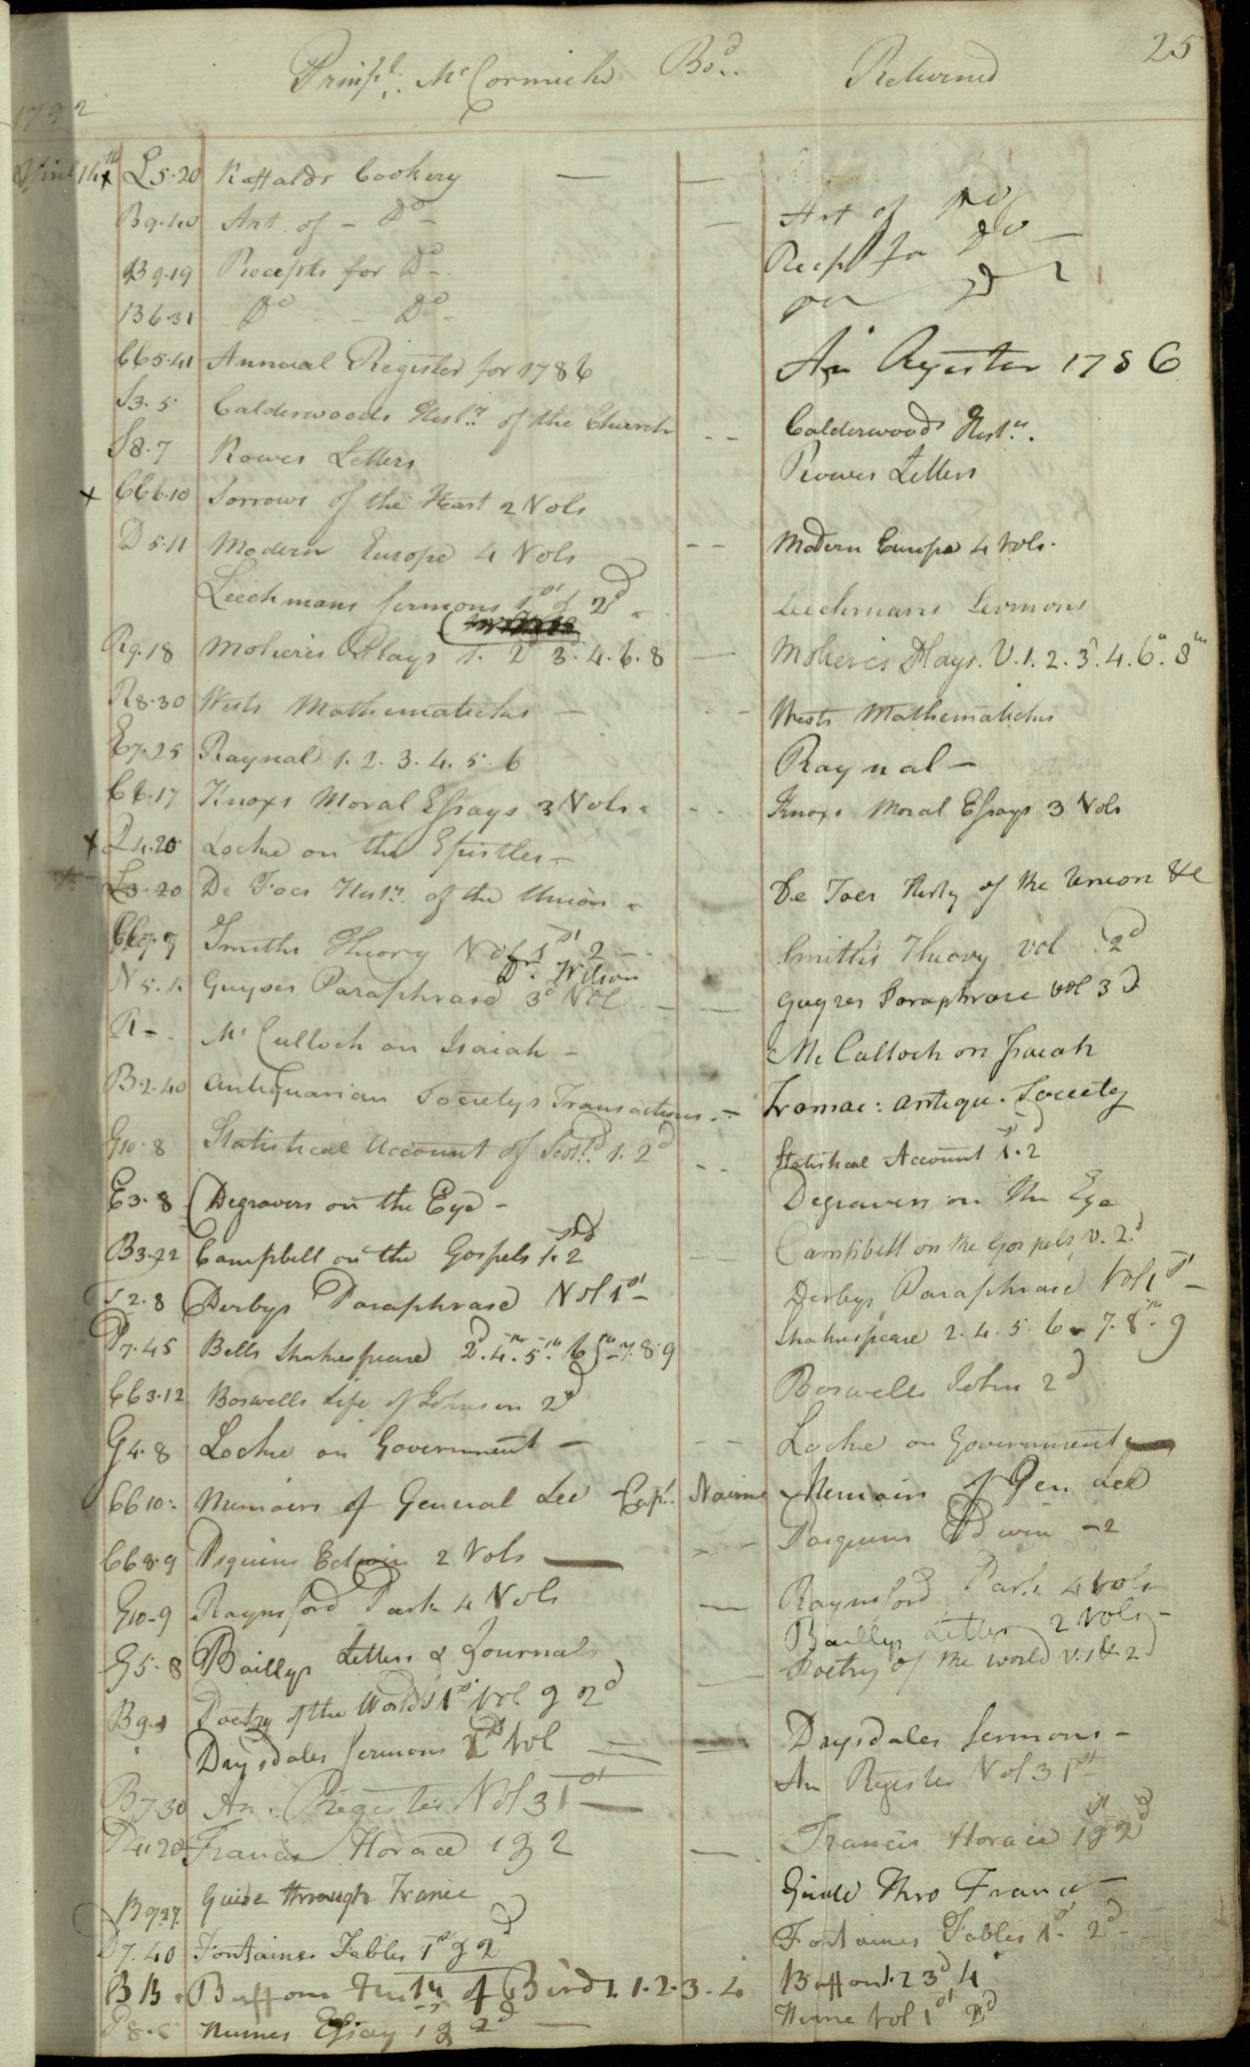 25
Prinl. McCormick Bod.. Returned
1792
April 14th L5.20 Raffalds Cookery
B9.40 Art of - Do - Art of Do
B9.19 Recepts for Do - Recepts for Do
B6.31 Do - - Do -
CC5.41 Annual Register for 1786 An Register 1786
S3.5 Calderwoods Histy. of the Church -- Calderwoods Histy.
S8.7 Rowes Letters Rowes Letters
x CC6.10 Sorrows of the Heart 2 Vols
D5.11 Modern Europe 4 Vols -- Modern Europe 4 Vols.
Leechmans Sermons 1st & 2d - Leechmans Sermons
R9.18 Molieres Plays 1. 2 3. 4. 6. 8 — Molieres Plays. V. 1. 2. 3. 4. 6th. 8th
R8.30 Wests Mathematicks — Wests Mathematicks
E7.25 Raynal 1. 2. 3. 4. 5. 6 Raynal —
C6.17 Knoxs Moral Essays 3 Vols - Knoxs Moral Essays 3 Vols
x Q4.20 Locke on the Epistles —
L3.20 De Foes Histy. of the Union - De Foes Histy of the Union &c
Smiths Theory Vols 1st 2 -- Smiths Theory vol 2d
Dr. Wilson
N5.1. Guyses Paraphrase 3d Vol — Guyses Paraphrase vol 3d
R-. McCulloch on Isaiah - McCulloch on Isaiah
B.2.40 Antiquarian Societys Transactions. - Transac: Antiqu. Society
G10.8 Statistical Account of Scotd. 1. 2d -- Statistical Account 1. 2d
E3.8 Degravers on the Eye - Degravers on the Eye
B3.22 Campbell on the Gospels 1. 2d Campbell on the Gospels V. 2d
2.8 Derbys Paraphrase Vol 1st - Derbys Paraphrase Vol 1st -
P7.45 Bells Shakespeare 2d. 4th. 5th. 6th - 7. 8. 9 Shakespeare 2. 4. 5. 6 - 7. 8th. 9
CC3.12 Boswells Life of Johnson 2d Boswells John 2d
G4.8 Locke on Government — -- Locke on Government —
CC10: Memoirs of General Lee Capt. Nairne Memoirs of Gen Lee
CC8.9 Psquins Edwin 2 Vols — Pasquins Edwin - 2
G10-9 Raynsford Park 4 Vols — Raynsford Park 4 Vols
G5.8 Baillys Letters & Journals Baillys Letters 2 Vols -
B9.1 Poetry of the World 1st Vol & 2d — Poetry of the World V. 1 & 2d
Drysdales Sermons 2d Vol — Drysdales Sermons -
B7.30 An. Register Vol 31st — An Register Vol 31st
P4.20 Francis Horace 1 & 2 — Francis Horace 1st & 2d
B9.27 Guide through France Guide Thro France -
7.40 Fontaines Fables 1st & 2d Fontaines Fables 1st. 2d -
BB. Buffons Histy of Birds 1. 2. 3. 4 Buffon 1. 2 3d 4
Humes Essay 1 & 2d — Hume Vol 1st 2d